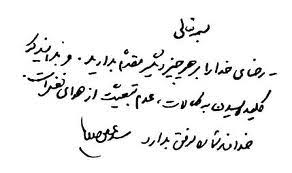 بسمه تعالی
- رضای خدا را بر هر چیز دیگر مقدم بدارید. و بدانید که
کلید رسیدن به کمالات، عدم تبعیت از هوای نفس است.
خداوند شما را موفق بدارد